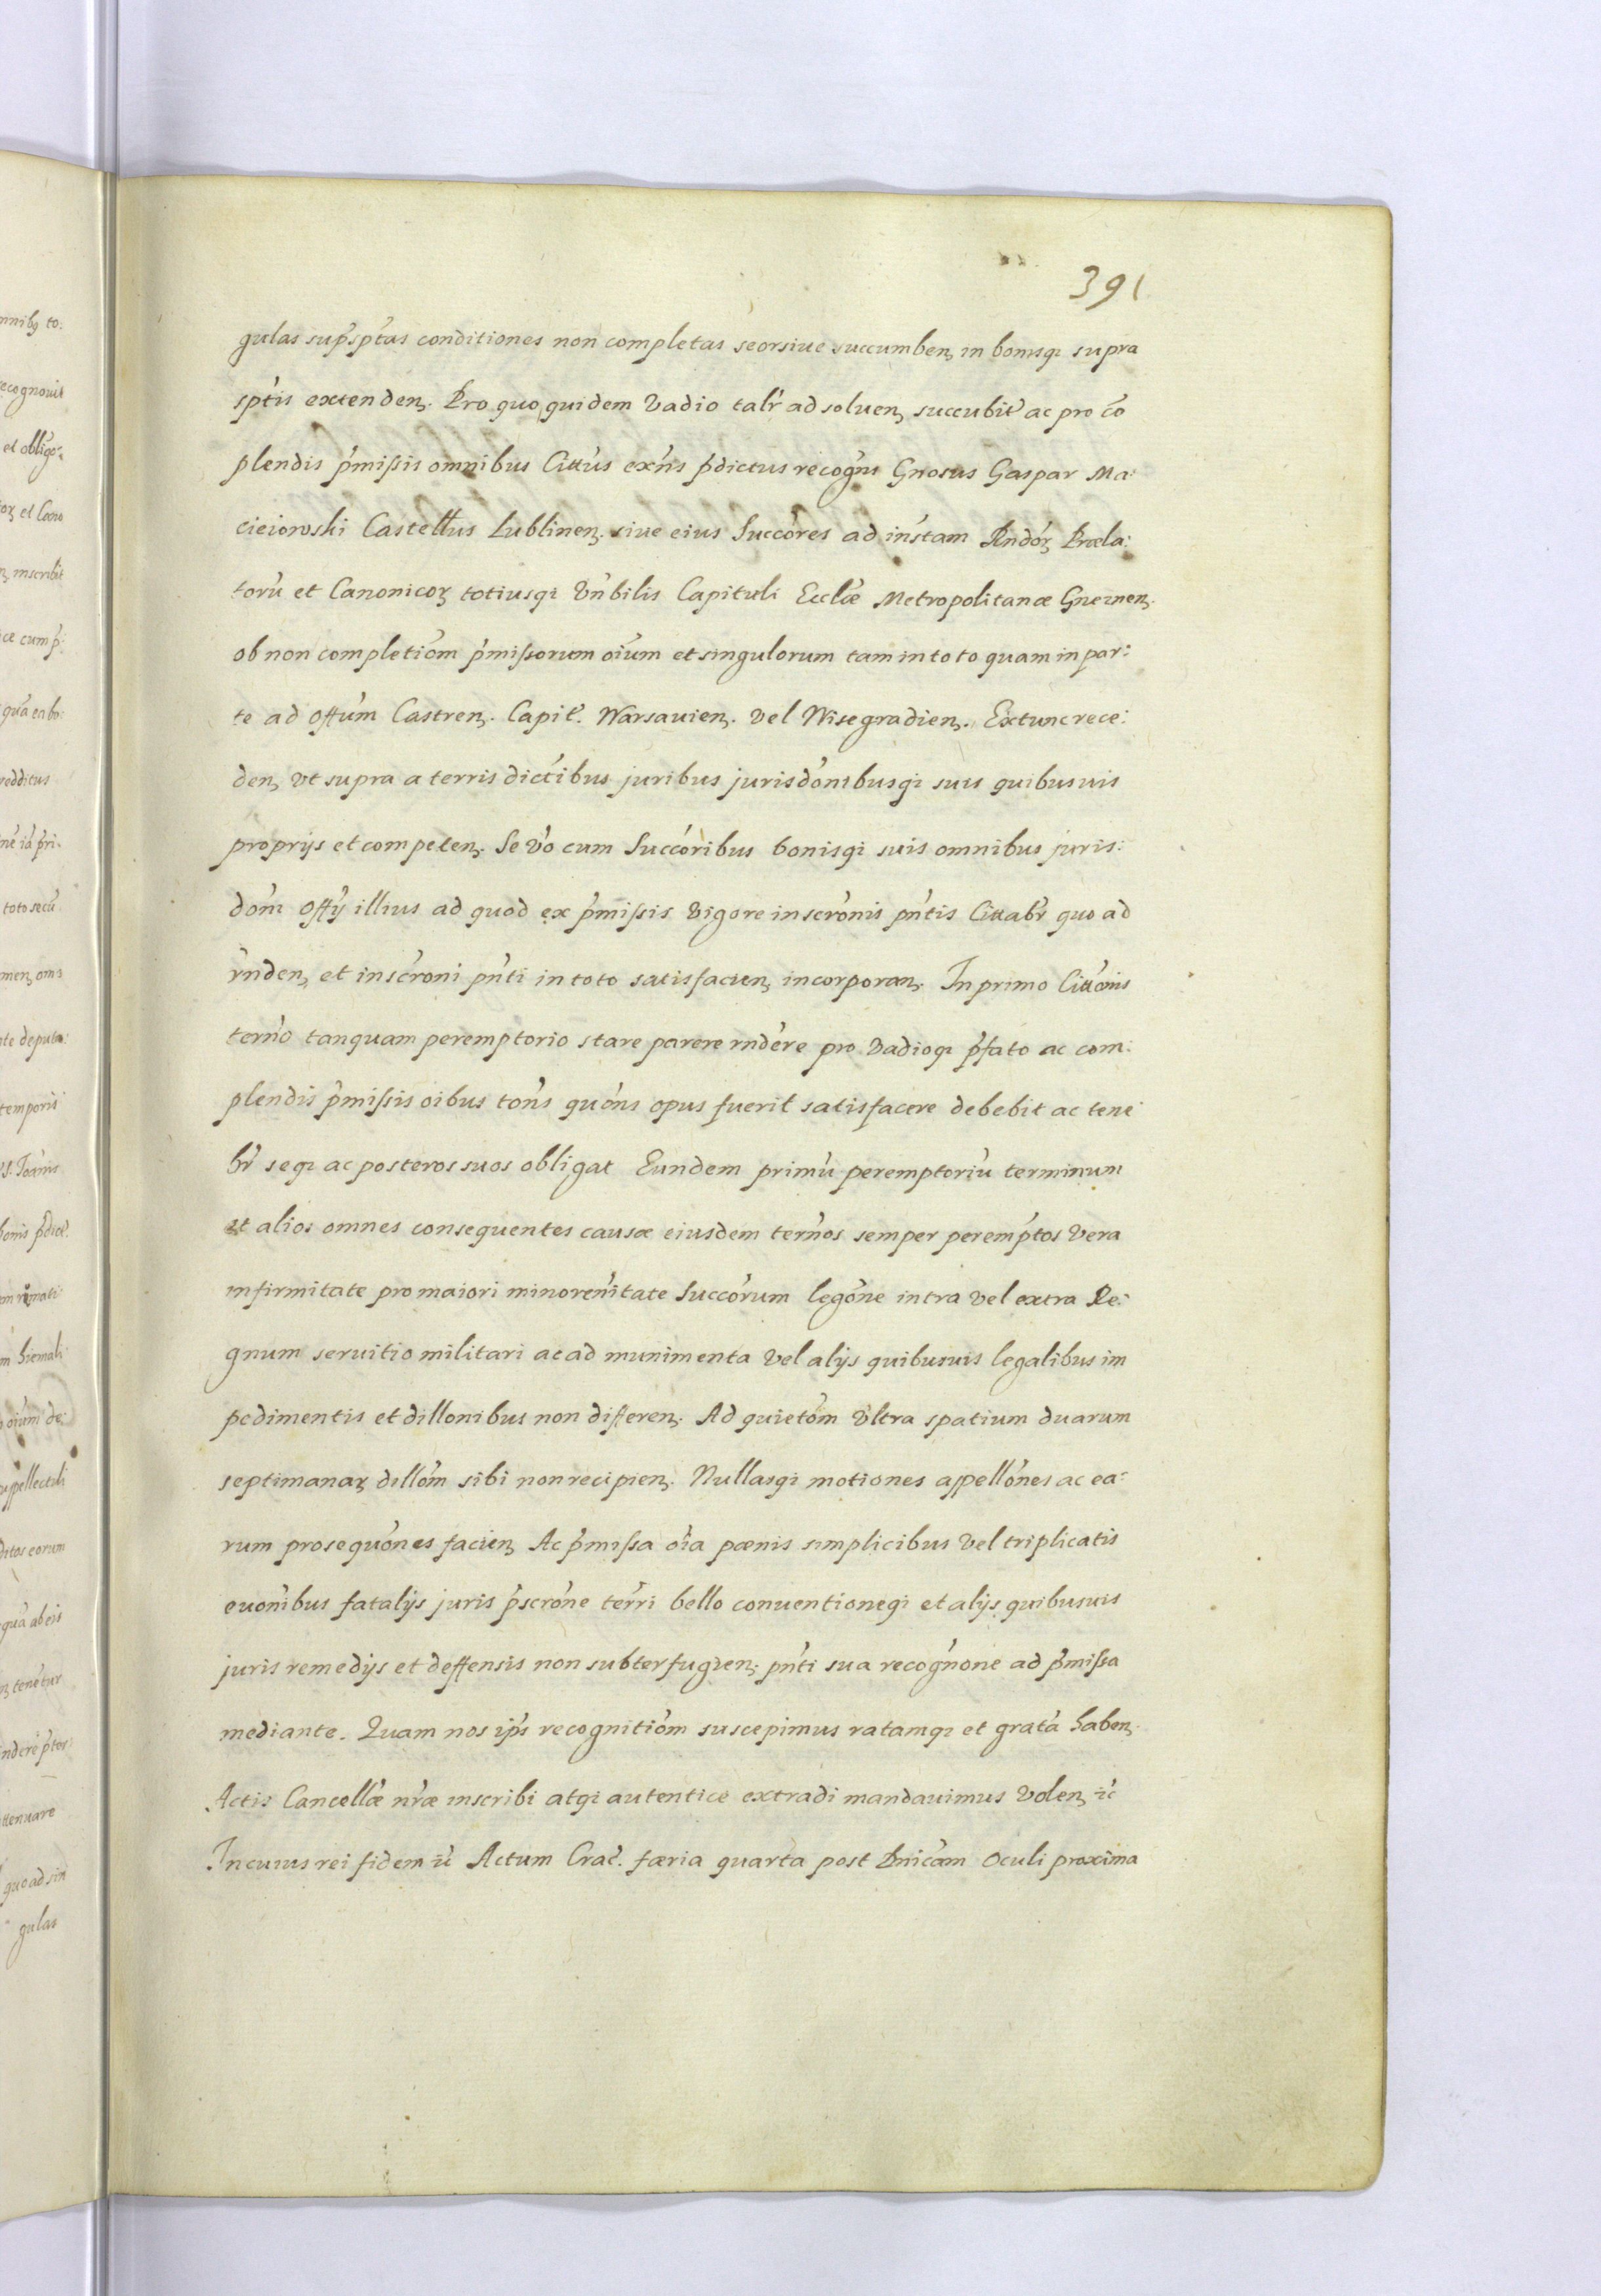 391
gulas sup̃sp̃tas conditiones non completas seorsiue succumbeñ in bonisq̃ supra
sp̃tis extendeñ. Pro quo quidem vadio talr̃ ad soluen̄ succubit ac pro cō
plendis p̃missis omnibus Citt̃us exñs p̃dictus recogñs Gñosus Gaspar Ma:
cieiowski Castell̃us Lublineñ. siue eius Succ̃ores ad inst̃am Rñdor̃ Præla:
torū et Canonicor̃ totiusq̃ Vñbilis Capituli Eccl̃æ Metropolitanæ Gnezneñ.
ob non completiõm p̃missorum oĩum et singulorum tam in toto quam in par:
te ad Off̃um Castreñ. Capit̃. Warsauieñ. vel Wisegradieñ. Ex tunc rece:
deñ vt supra a terris dict̃ibus juribus jurisdõnibusq̃ suis quibusuis
proprijs et competeñ. Se v̄o cum Succ̃oribus bonisq̃ suis omnibus juris:
dõm Off̃ÿ illius ad quod ex p̃missis vigore inscrõnis p̃ntis Citt̃abr̃ quo ad
r̃ndeñ et inscrõni p̃nti in toto satisfacieñ incorporañ. In primo Citt̃onis
ter̃no tanquam peremptorio stare parere r̃ndere pro vadioq̃ p̃fato ac com:
plendis p̃missis oĩbus toñs quoñs opus fuerit satisfacere debebit ac tene
br̃ seq̃ ac posteros suos obligat Eundem primū peremptoriū terminum
et alios omnes consequentes causæ eiusdem ter̃nos semper peremp̃tos vera
infirmitate pro maiori minoreñitate Succ̃orum legõne intra vel extra Re:
gnum seruitio militari ac ad munimenta vel alijs quibusuis legalibus im
pedimentis et dillonibus non differeñ. Ad quietõm vltra spatium duarum
septimanar̃ dillõm sibi non recipieñ. Nullasq̃ motiones appellõnes ac ea:
rum prosequõnes facieñ Ac p̃missa oĩa pœnis simplicibus vel triplicatis
euonĩbus fatalijs juris p̃scrõne ter̃ri bello conuentioneq̃ et alijs quibusuis
juris remedijs et deffensis non subterfugieñ. p̃nti sua recogñone ad p̃missa
mediante. Quam nos ip̃s recognitiõm suscepimus ratamq̃ et gratā habeñ
Actis Cancell̃æ nr̃æ inscribi atq̃ autentice extradi mandauimus voleñ ꝛc̃
In cuius rei fidem ꝛc̃ Actum Crac̃. færia quarta post Dñicam Oculi proxima